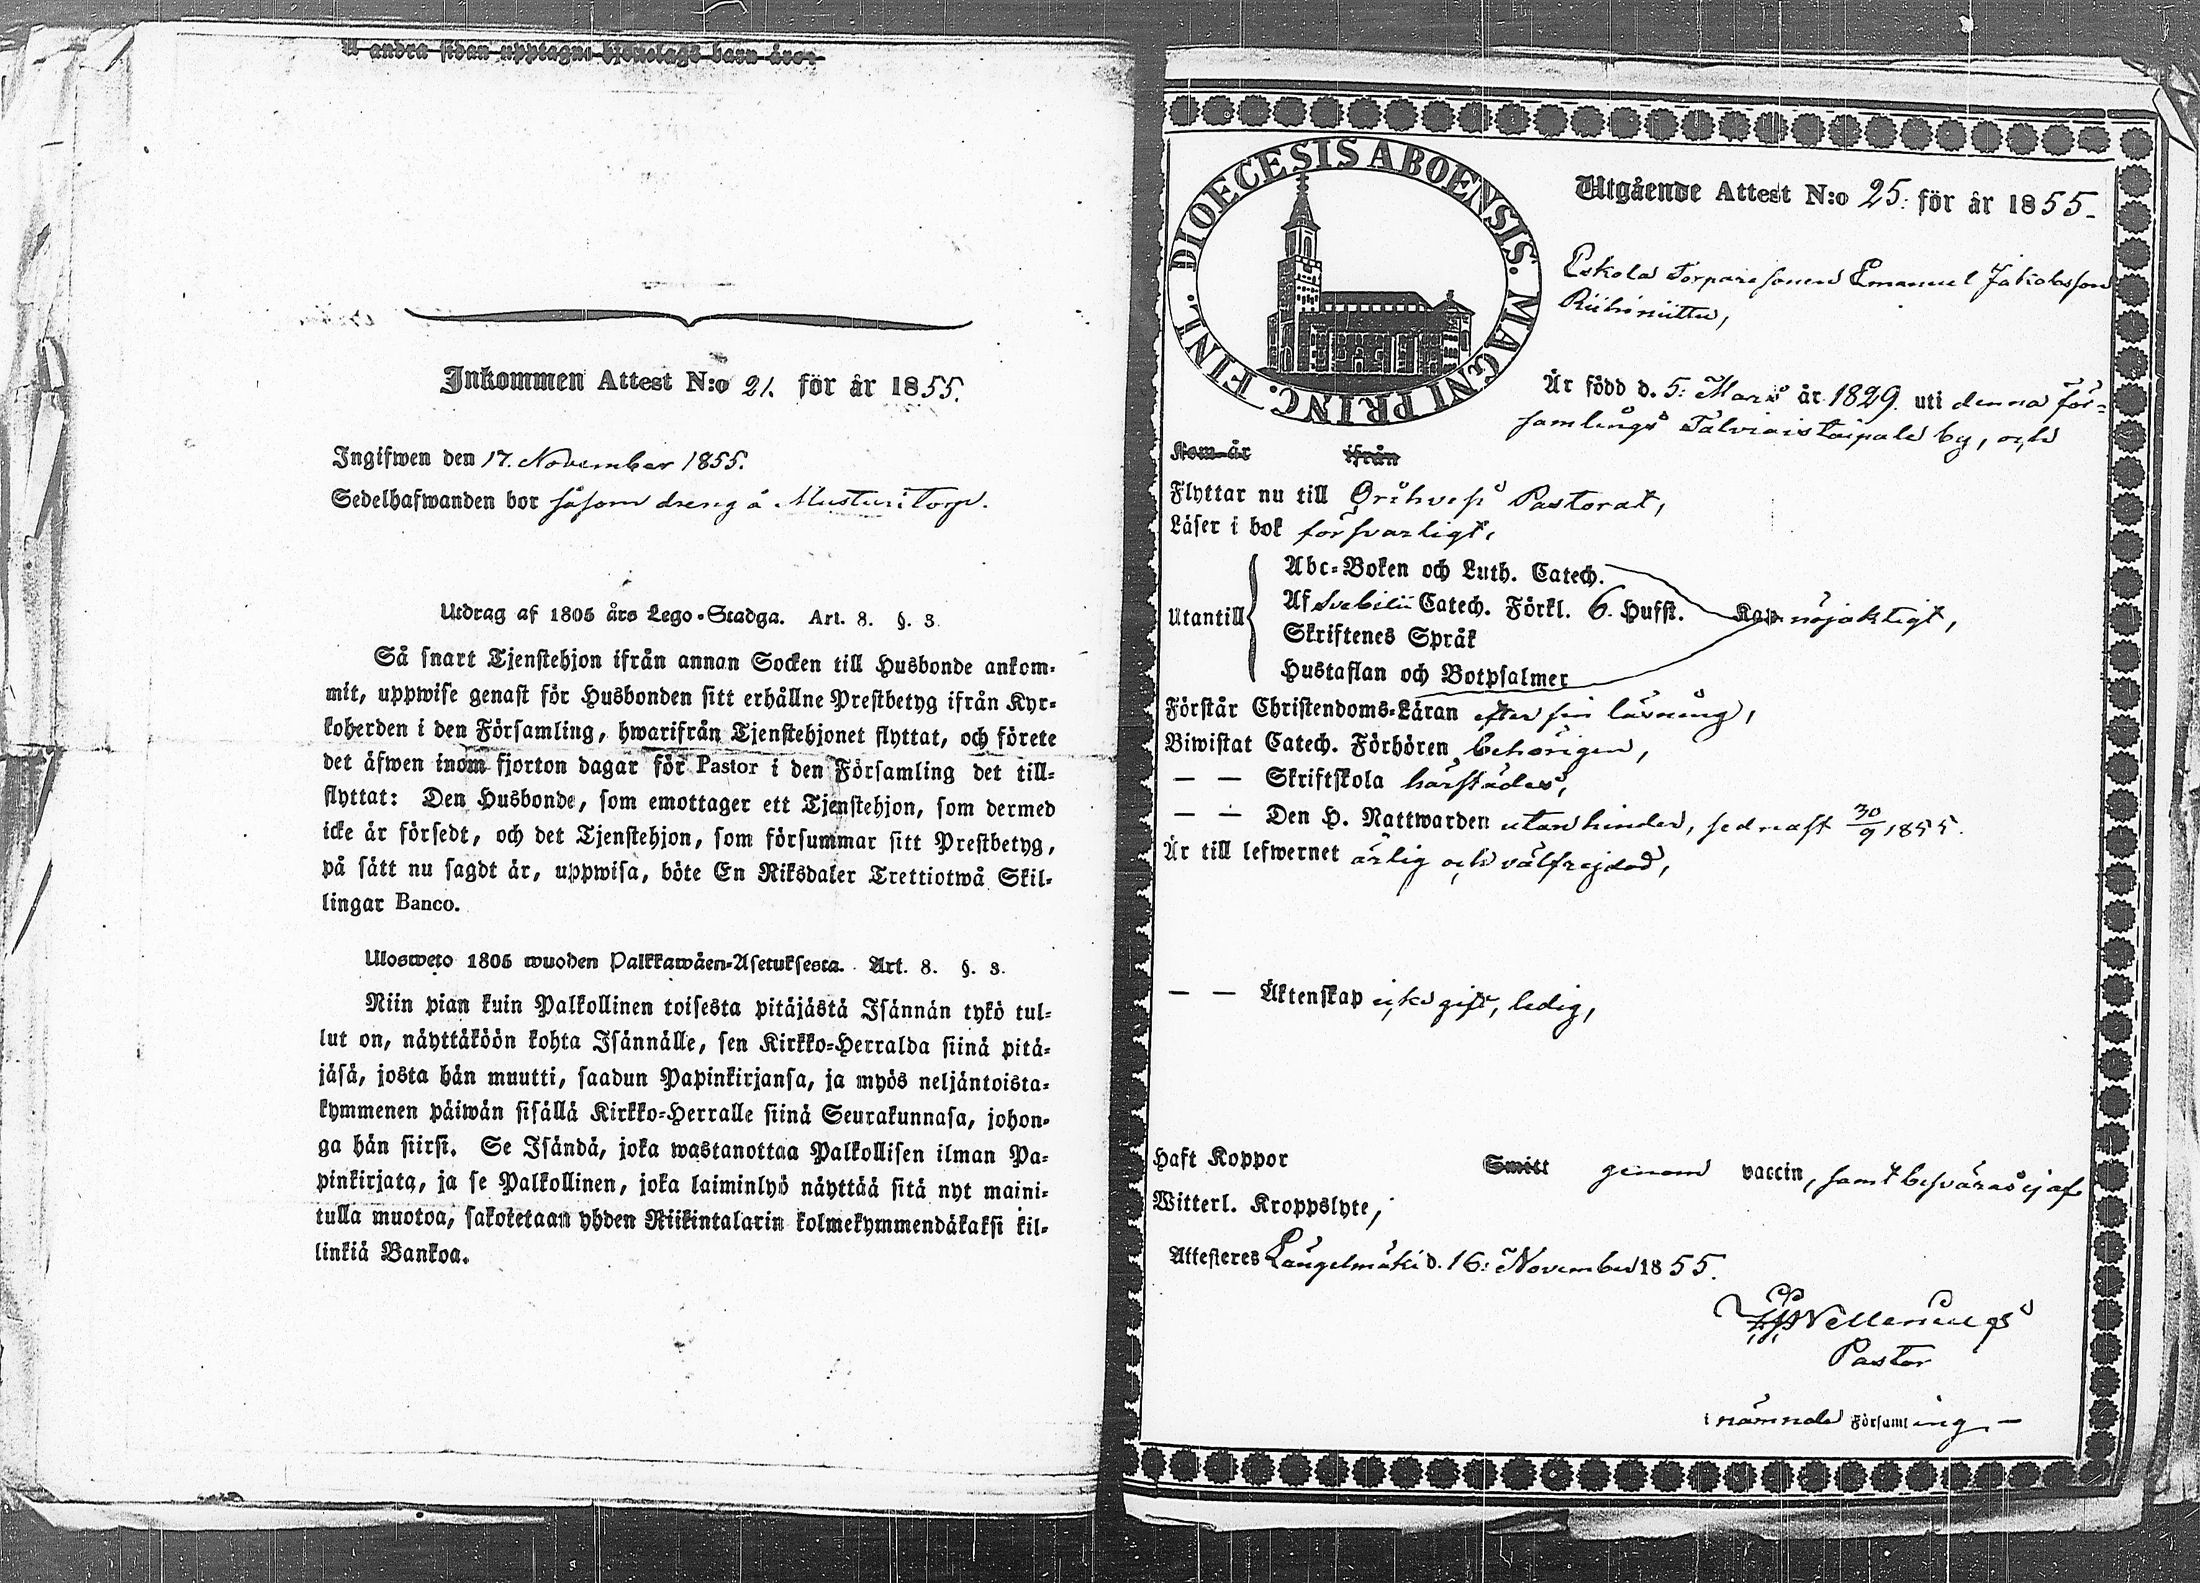 Å andra sidan upptagne hjonelags barn äro:
Inkommen Attest N:o 21. för år 1855.
Ingifwen den 17. November 1855.
Sedelhafwanden bor såsom dreng å Musturi Torp.
Utdrag af 1805 års Lego-Stadga. Art. 8. §. 3.
Så snart Tjenstehjon ifrån annan Socken till Husbonde ankom-
mit, uppwise genast för Husbonden sitt erhållne Prestbetyg ifrån Kyr-
koherden i den Församling, hwarifrån Tjenstehjonet flyttat, och förete
det äfwen inom fjorton dagar för Pastor i den Församling det till-
flyttat: Den Husbonde, som emottager ett Tjenstehjon, som dermed
icke är försedt, och det Tjenstehjon, som försummar sitt Prestbetyg,
på sätt nu sagdt är, uppwisa, böte En Riksdaler Trettiotwå Skil-
lingar Banco.
Ulosweto 1805 wuoden Palkkawäen-Asetuksesta. Art. 8. §. 3.
Niin pian kuin Palkollinen toisesta pitäjästä Isännän tykö tul-
lut on, näyttäköön kohta Isännälle, sen Kirkko-Herralda siinä pitä-
jäsä, josta hän muutti, saadun Papinkirjansa, ja myös neljäntoista-
kymmenen päiwän sisällä Kirkko-Herralle siinä Seurakunnasa, johon-
ga hän siirsi. Se Isändä, joka wastanottaa Palkollisen ilman Pa-
pinkirjata, ja se Palkollinen, joka laiminlyö näyttää sitä nyt maini-
tulla muotoa, sakotetaan yhden Riikintalarin kolmekymmendäkaksi kil-
linkiä Bankoa.
DIOECESIS ABOENSIS. MAGNI PRINC. FINL.
Utgående Attest N:o 25. för år 1855.
Eskola Torparesonen Emanuel Jakobsson
Riihiniittu,
Är född d. 5: Mars år 1829. uti denna för-
samlings Talviaistaipale by, och
Kom år ifrån
Flyttar nu till Orihvesi Pastorat,
Läser i bok försvarligt,
Utantill
Abc-Boken och Luth. Catech.
Af Svebilii Catech. Förkl. 6. Hufst. Kap nöjaktigt,
Skriftenes Språk
Hustaflan och Botpsalmer
Förstår Christendoms-Läran efter sin läsning,
Biwistat Catech. Förhören behörigen,
— — Skriftskola härstädes,
— — Den H. Nattwarden utan hinder, sednast 30/9 1855.
Är till lefwernet ärlig och välfrejdad,
— — Äktenskap icke gift, ledig,
Haft Koppor Smitt genom vaccin, samt besväras ej af
Witterl. Kroppslyte,
Attesteres Längelmäki d. 16: November 1855.
Pastor
i nämnde Församling —